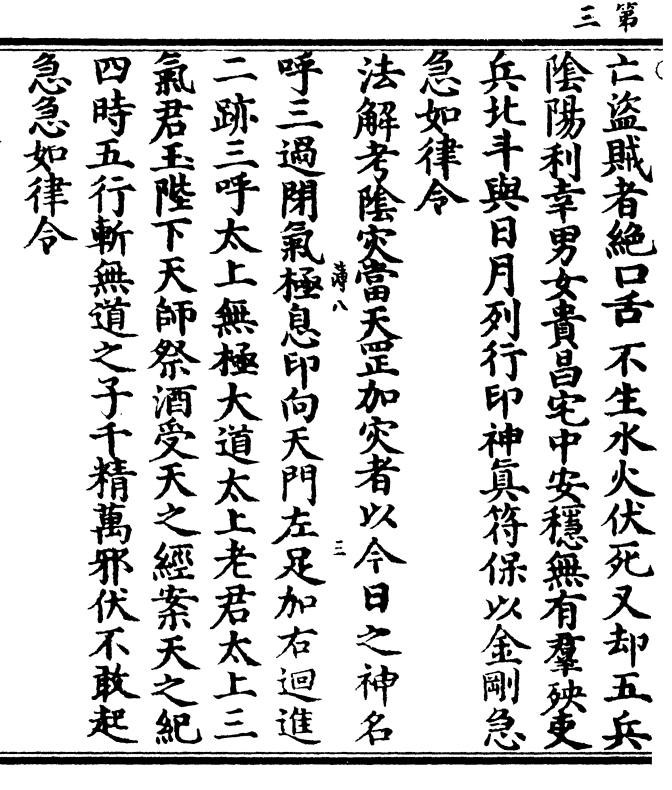 第三
亡盜賊者絕口舌不生水火伏死又却五兵
陰陽利幸男女貴昌宅中安穩無有羣殃更
兵北斗與日月列行印神真符保以金剛急
急如律令
法解考陰灾當天罡加灾者以今日之神名
薄八 三
呼三過閉氣極息印向天門左足加右迴進
二跡三呼太上無極大道太上老君太上三
氣君玉陛下天師祭酒受天之經案天之紀
四時五行斬無道之子千精萬邪伏不敢起
急急如律令